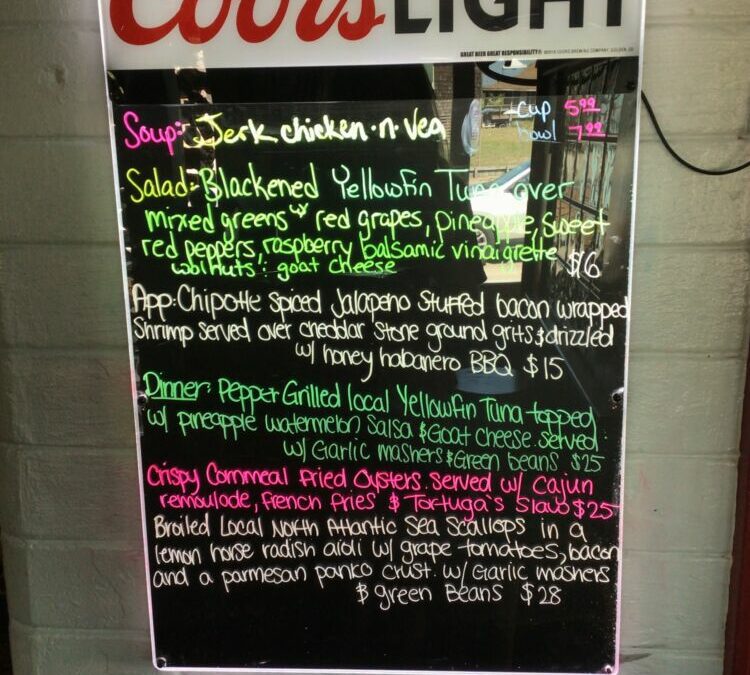 Coors LIGHT
GREAT BEER GREAT RESPONSIBILITY
Soup: Jerk chicken n Veg
cup 5.99
bowl 7.99
Salad: Blackened Yellowfin Tuna over
mixed greens w/ red grapes, pineapple, sweet
red peppers, raspberry balsamic vinaigrette
walnuts : goat cheese
$16
App: Chipotle spiced Jalapeno stuffed bacon wrapped
Shrimp served over cheddar stone ground grits & drizzled
w/ honey habanero BBQ $15
Dinner: Pepper Grilled local Yellowfin Tuna topped
w/ pineapple watermelon Salsa & Goat cheese served
w/ Garlic mashers & Green beans $25
Crispy Cornmeal Fried Oysters served w/ Cajun
remoulade, French fries & Tortuga's Slaw $25
Broiled Local North Atlantic Sea Scallops in a
lemon horse radish aioli w/ grape tomatoes, bacon
and a parmesan panko crust. w/ Garlic mashers
& green Beans $28